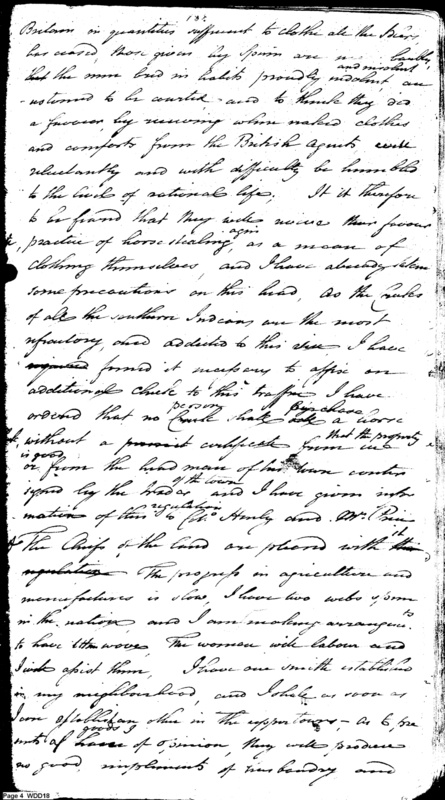 132
Britain in quantities sufficient to clothe all the Indians
has ceased, those given by Spain are
and insolent
but the men bred in habits proudly indolent, are
-ustomed to be courted and to think they did
a favour, by receiving when naked clothes
and comforts from the British Agents, will
reluctantly and with difficulty be humbled
to the level of rational life; It is therefore
to be feared that they will revive their favour
practice of horse stealing again, as a mean of
clothing themselves, and I have already taken
some precautions on this head, as the Creeks
of all the southern Indians are the most
refractory and addicted to this vice I have
required found it necessary to affix an
additional check to this traffic I have
person purchase
ordered that no Creek shall sell a horse
without a permit certificate from me that the property
is good
or from the head man of his town counter
of the town
signed by the trader and I have given infor
mation of this regulation to Col. Henly and Mr. Price
The Chiefs of the land are pleased with it this
regulation The progress in agriculture and
manufactures is slow, I have two webs spun
in the nation and I am making arrangem ts
to have them wove, The women will labour and
I will assist them, I have one smith established
in my neighbourhood, and I shall as soon as
I can establish an other in the upper towns, as to pre
sents of goods I of opinion, they will produce
no good, impliments of husbandry and
Page 4 WDD18